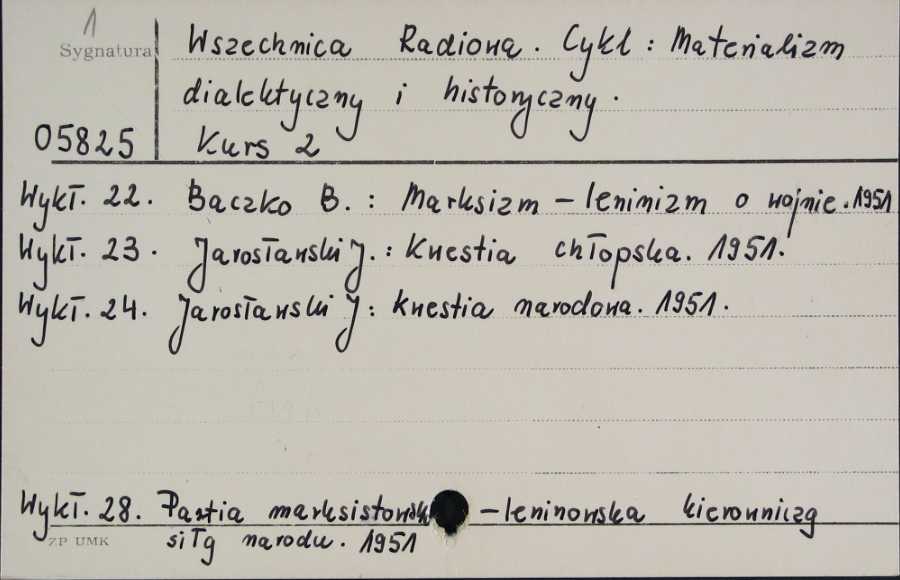 1
Sygnatura
Wszechnica Radiowa. Cykl: Materializm
dialektyczny i historyczny.
05825 Kurs 2
Wykł. 22. Baczko B.: Marksizm-leninizm o wojnie. 1951
Wykł. 23. Jarosławski J.: Kwestia chłopska. 1951.
Wykł. 24. Jarosławski J: Kwestia narodowa. 1951.
Wykł. 28. Partia marksistowsk -leninowska kierowniczą
siłą narodu. 1951
ZP UMK